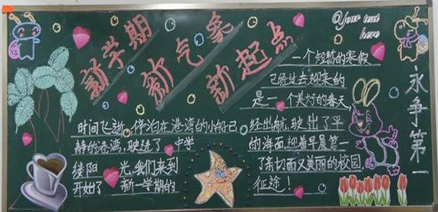 新学期
新气象
新起点
Your text
here
一个短暂的寒假
已经过去迎来的
是一个美好的春天
永争第一
时间飞逝，停泊在港湾的小船已
静的港湾，驶进了
缕阳 光，我们来到
开始了 新一学期的
经出航，驶出了平
的海面，迎着早晨第一
了亲切而又美丽的校园
征途！